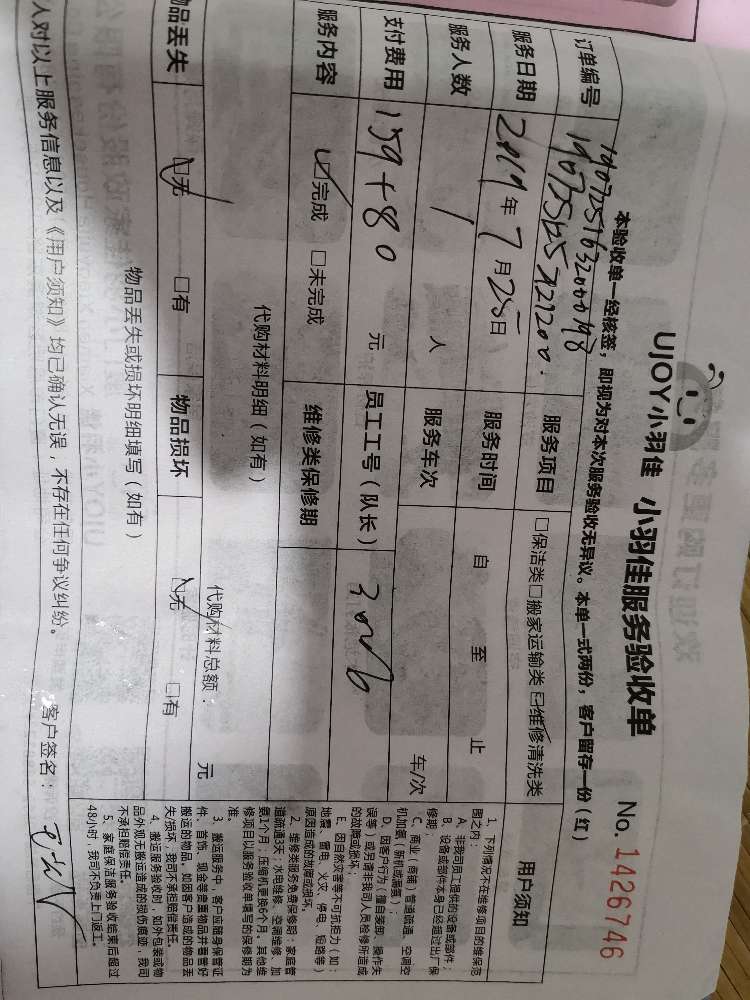 UJOY小羽佳 小羽佳服务验收单
No. 1426746
本验收单一经核签，即视为对本次服务验收无异议。本单一式两份，客户留存一份（红）
订单编号
服务项目 □保洁类□搬家运输类☑维修清洗类
服务日期 2019年7月25日 服务时间 自 至 止
服务人数 1 人 服务车次 车/次
支付费用 159+80 元 员工工号（队长）
服务内容 ☑完成 □未完成 维修类保修期
代购材料明细（如有） 代购材料总额： 元
物品丢失 ☑无 □有 物品损坏 ☑无 □有
物品丢失或损坏明细填写（如有）
人对以上服务信息以及《用户须知》均已确认无误，不存在任何争议纠纷。 客户签名：
用户须知
1、下列情况不在维修项目的维保范
围之内：
A、非我司员工提供的设备或部件；
B、设备或部件本身已经超过出厂保
修期；
C、商业（商铺）管道疏通，空调空
机加氨（新机或漏氨）；
D、因客户行为（擅自装卸、操作失
误等）或另请非我司人员检修所造成
的故障或损坏；
E、因自然灾害等不可抗拒力（如：
地震、雷电、火灾、停电、短路等）
原因造成的故障或损坏。
2、维修类服务免费保修期：家庭管
道疏通3天；水电维修、空调维修、加
氨1个月；压缩机更换6个月。其他维
修项目以服务验收单填写的保修期为
准。
3、搬运服务中，客户应随身保管证
件、首饰、现金等贵重物品并看管好
搬运的物品。如因客户造成的物品丢
失/损坏，我司不承担赔偿责任。
4、搬运服务验收时，如外包装或物
品外观无搬运造成的损伤痕迹，我司
不承担赔偿责任。
5、家庭保洁服务验收结束后超过
48小时，我司不负责上门返工。